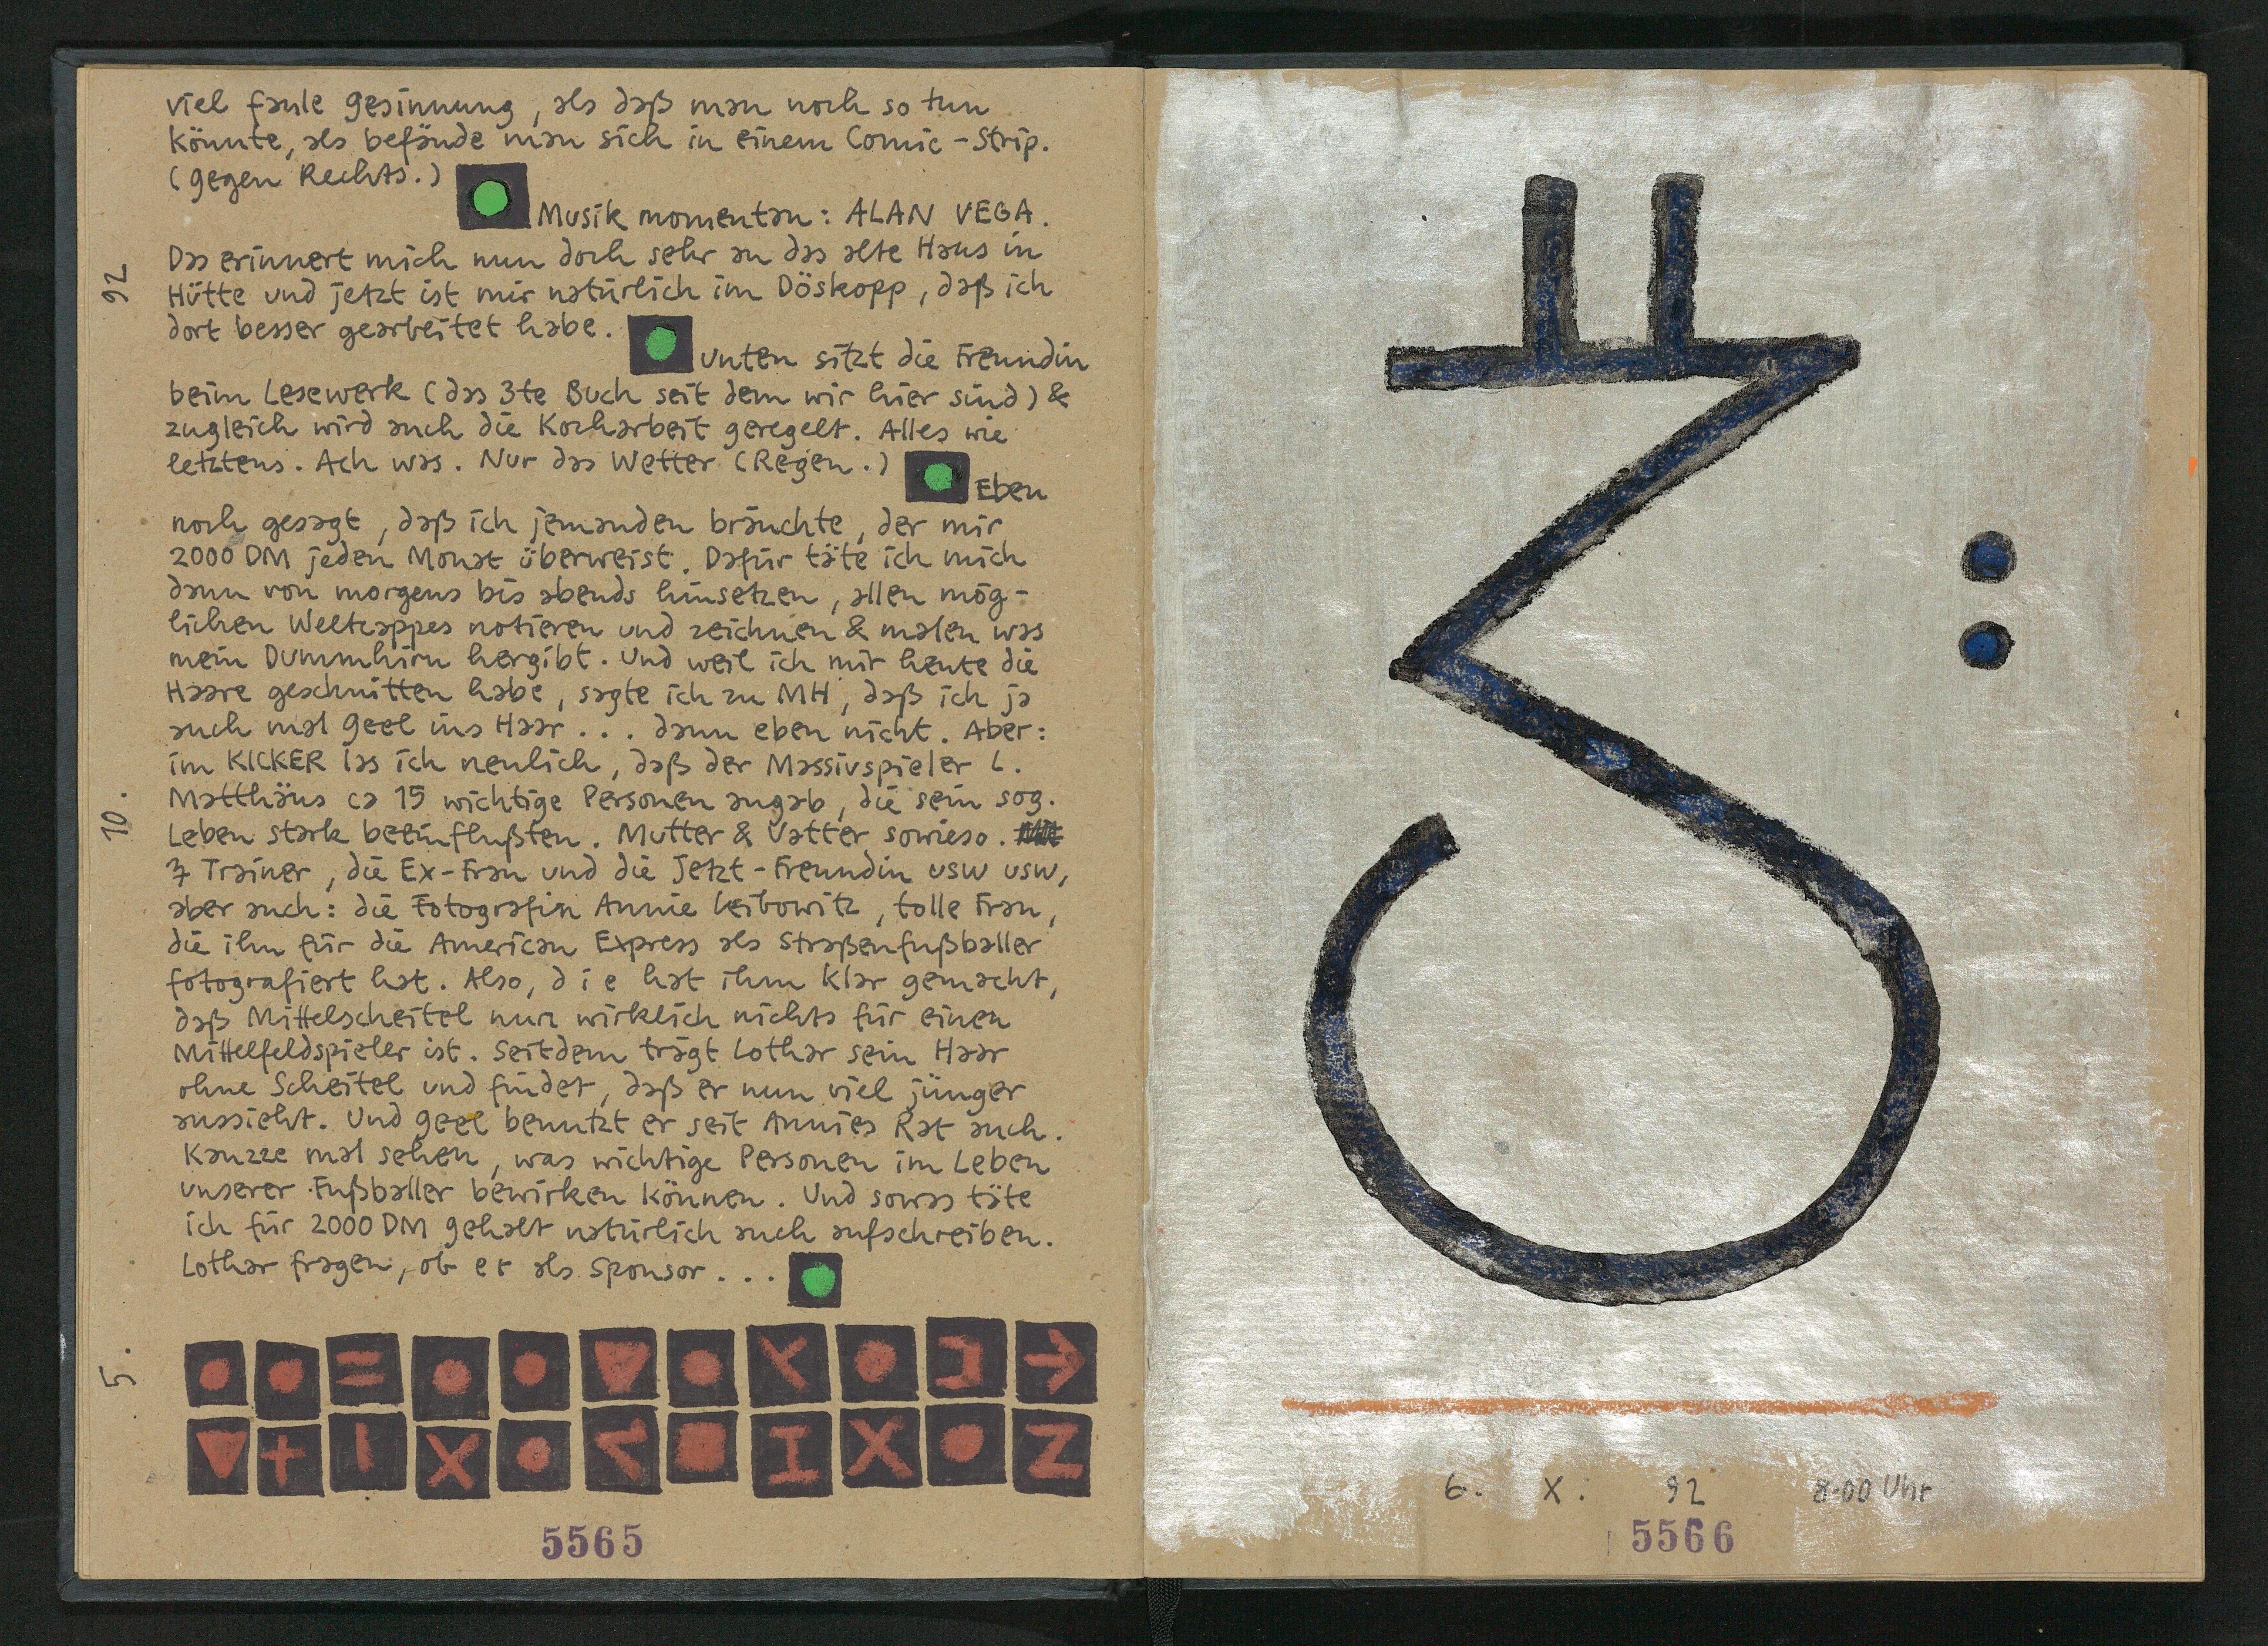 viel faule Gesinnung, als daß man noch so tun
könnte, als befände man sich in einem Comic-Strip.
(gegen Rechts.)
Musik momentan: ALAN VEGA.
Das erinnert mich nun doch sehr an das alte Haus in
Hütte und jetzt ist mir natürlich im Döskopp, daß ich
dort besser gearbeitet habe.
Unten sitzt die Freundin
beim Lesewerk (das 3te Buch seit dem wir hier sind) &
zugleich wird auch die Kocharbeit geregelt. Alles wie
letztens. Ach was. Nur das Wetter (Regen.)
Eben
noch gesagt, daß ich jemanden bräuchte, der mir
2000 DM jeden Monat überweist. Dafür täte ich mich
dann von morgens bis abends hinsetzen, allen mög-
lichen Weltcappes notieren und zeichnen & malen was
mein Dummhirn hergibt. Und weil ich mir heute die
Haare geschnitten habe, sagte ich zu MH, daß ich ja
auch mal Geel ins Haar... dann eben nicht. Aber:
im KICKER las ich neulich, daß der Massivspieler L.
Matthäus ca 15 wichtige Personen angab, die sein sog.
Leben stark beeinflußten. Mutter & Vatter sowieso.
7 Trainer, die Ex-Frau und die Jetzt-Freundin usw usw,
aber auch: die Fotografin Annie Leibowitz, tolle Frau,
die ihn für die American Express als Straßenfußballer
fotografiert hat. Also, d i e hat ihm klar gemacht,
daß Mittelscheitel nun wirklich nichts für einen
Mittelfeldspieler ist. Seitdem trägt Lothar sein Haar
ohne Scheitel und findet, daß er nun viel jünger
aussieht. Und Geel benutzt er seit Annies Rat auch.
Kanzze mal sehen, was wichtige Personen im Leben
unserer Fußballer bewirken können. Und sowas täte
ich für 2000 DM Gehalt natürlich auch aufschreiben.
Lothar fragen, ob er als Sponsor...
5. 10. 92
5565
6. X. 92 8.00 Uhr
5566